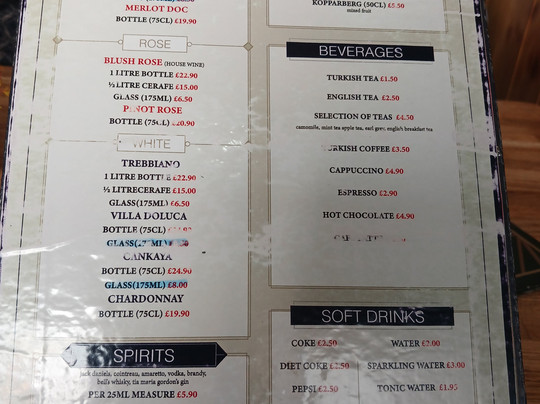 MERLOT DOC
BOTTLE (75CL) £19.90
ROSE
BLUSH ROSE (HOUSE WINE)
1 LITRE BOTTLE £22.90
½ LITRE CERAFE £15.00
GLASS (175ML) £6.50
PINOT ROSE
BOTTLE (75CL) £20.90
WHITE
TREBBIANO
1 LITRE BOTTLE £22.90
½ LITRECERAFE £15.00
GLASS(175ML) £6.50
VILLA DOLUCA
BOTTLE (75CL)
CANKAYA
BOTTLE (75CL) £24.90
GLASS(175ML) £8.00
CHARDONNAY
BOTTLE (75CL) £19.90
SPIRITS
jack daniels, cointreau, amaretto, vodka, brandy,
bell's whisky, tia maria gordon's gin
PER 25ML MEASURE £5.90
KOPPARBERG (50CL) £5.50
mixed fruit
BEVERAGES
TURKISH TEA £1.50
ENGLISH TEA £2.50
SELECTION OF TEAS £4.50
camomile, mint tea apple tea, earl grey, english breakfast tea
TURKISH COFFEE £3.50
CAPPUCCINO £4.90
ESPRESSO £2.90
HOT CHOCOLATE £4.90
SOFT DRINKS
COKE £2.50
WATER £2.00
DIET COKE £2.50
SPARKLING WATER £3.00
PEPSI £2.50
TONIC WATER £1.95